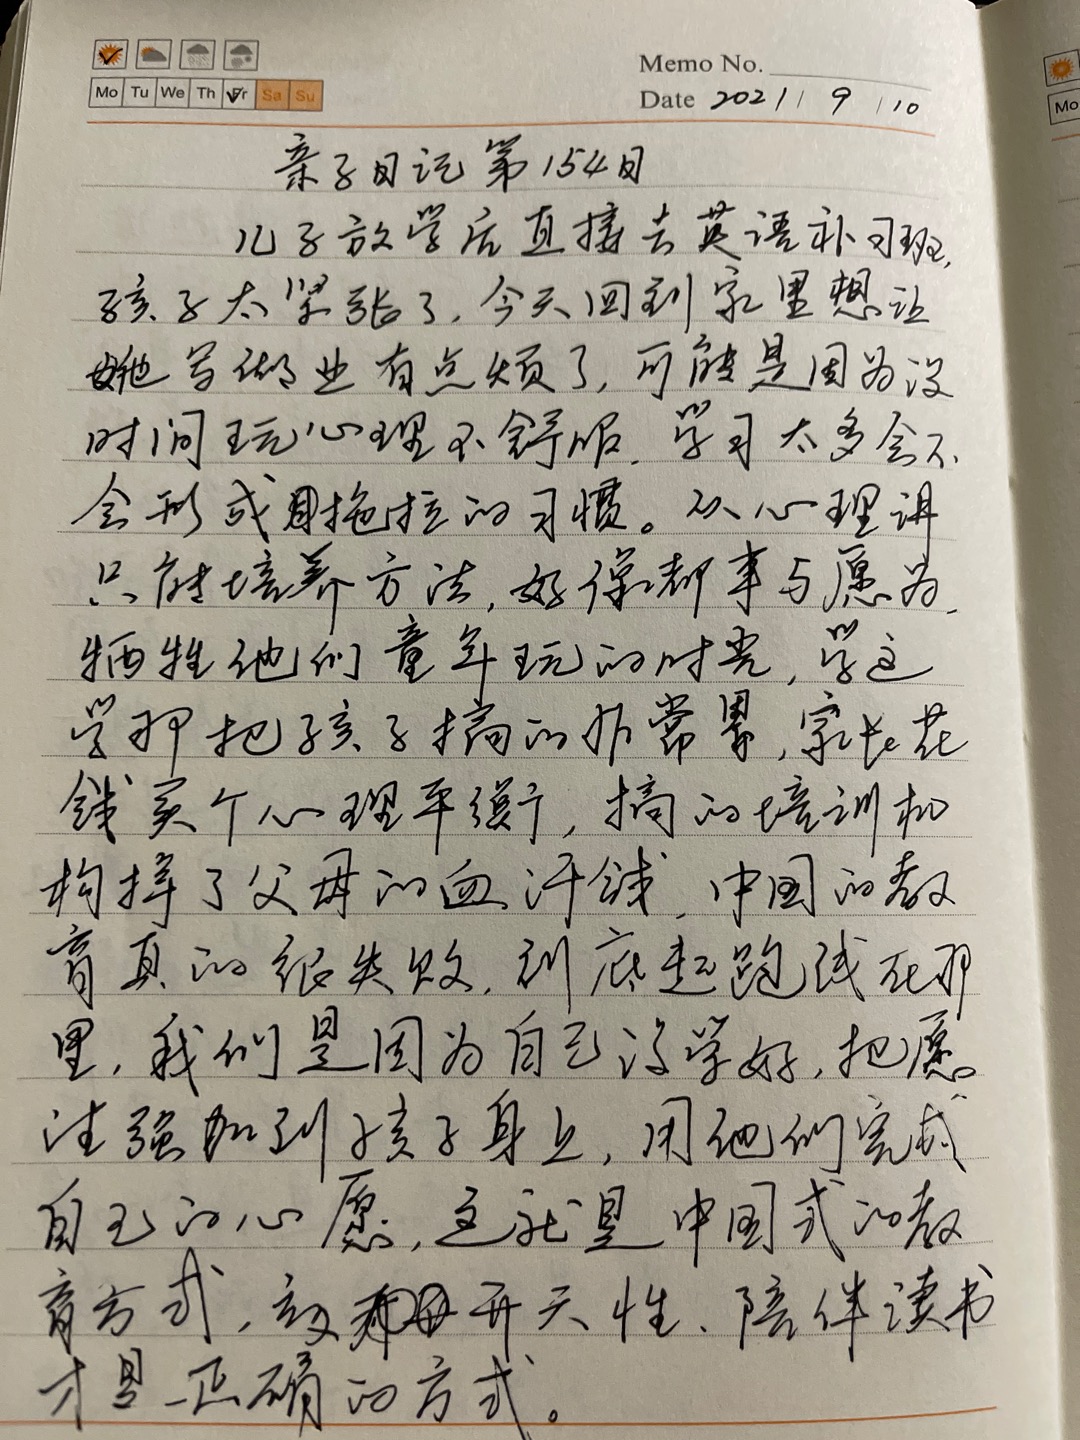 Memo No.
Mo Tu We Th Fr Sa Su
Date 2021 / 9 / 10
Mo
亲子日记第154日
儿子放学后直接去英语补习班,
孩子太紧张了,今天回到家里想让
他写作业有点烦了,可能是因为没
时间玩心理不舒服,学习太多会不
会形成拖拉的习惯。从心理讲
只能培养方法,好像都事与愿为,
牺牲他们童年玩的时光,学这
学那把孩子搞的非常累,家长花
钱买个心理平衡,搞的培训机
构挣了父母的血汗钱,中国的教
育真的很失败,到底起跑线在那
里,我们是因为自己没学好,把愿
法强加到孩子身上,用他们完成
自己的心愿,这就是中国式的教
育方式,放开天性、陪伴读书
才是正确的方式。